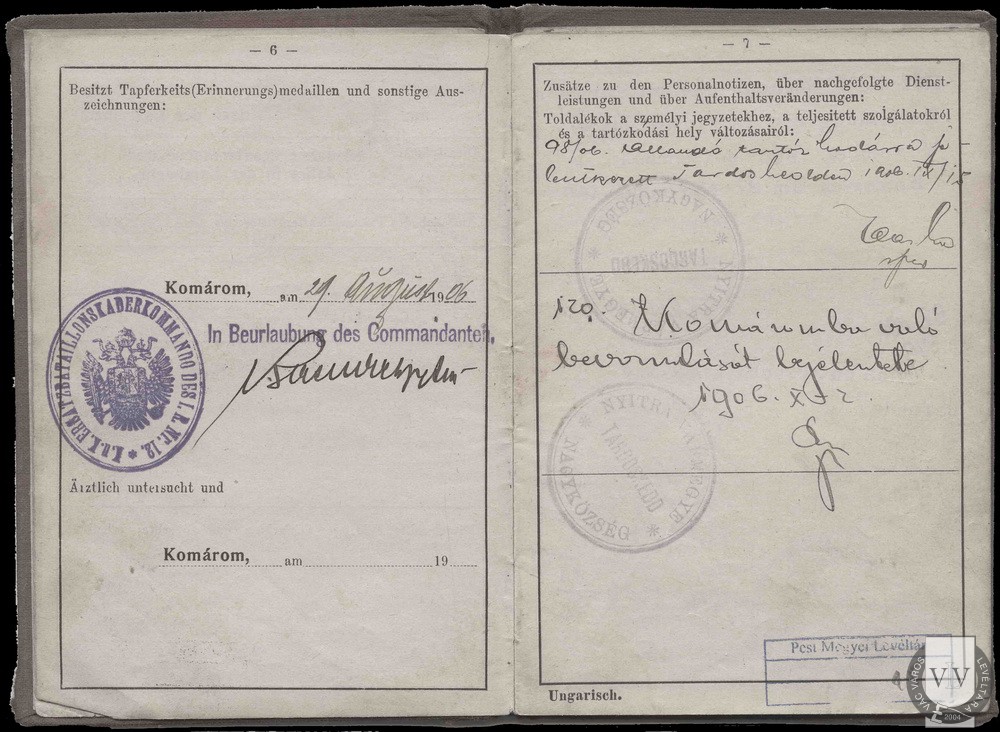 — 6 —
Besitzt Tapferkeits(Erinnerungs)medaillen und sonstige Aus-
zeichnungen:
Komárom, am 29. August 1906
In Beurlaubung des Commandanten,
K.u.K. ERSATZBATAILLONSKADERKOMMANDO DES I. R. Nr. 12.
Ärztlich untersucht und
Komárom, am 19
— 7 —
Zusätze zu den Personalnotizen, über nachgefolgte Dienst-
leistungen und über Aufenthaltsveränderungen:
Toldalékok a személyi jegyzetekhez, a teljesitett szolgálatokról
és a tartózkodási hely változásairól:
98/06. állandó tartóz kodásra je-
lentkezett Tardoskedden 1906. IX/15
NYITRA MEGYE
NAGYKÖZSÉG
TARDOSKEDD
120. Komáromba való
bevonulását bejelentette
1906. X. 2.
NYITRA MEGYE
TARDOSKEDD
NAGYKÖZSÉG
Pest Megyei Levéltár
Ungarisch.
VÁC VÁROS LEVÉLTÁRA
VVL
2004